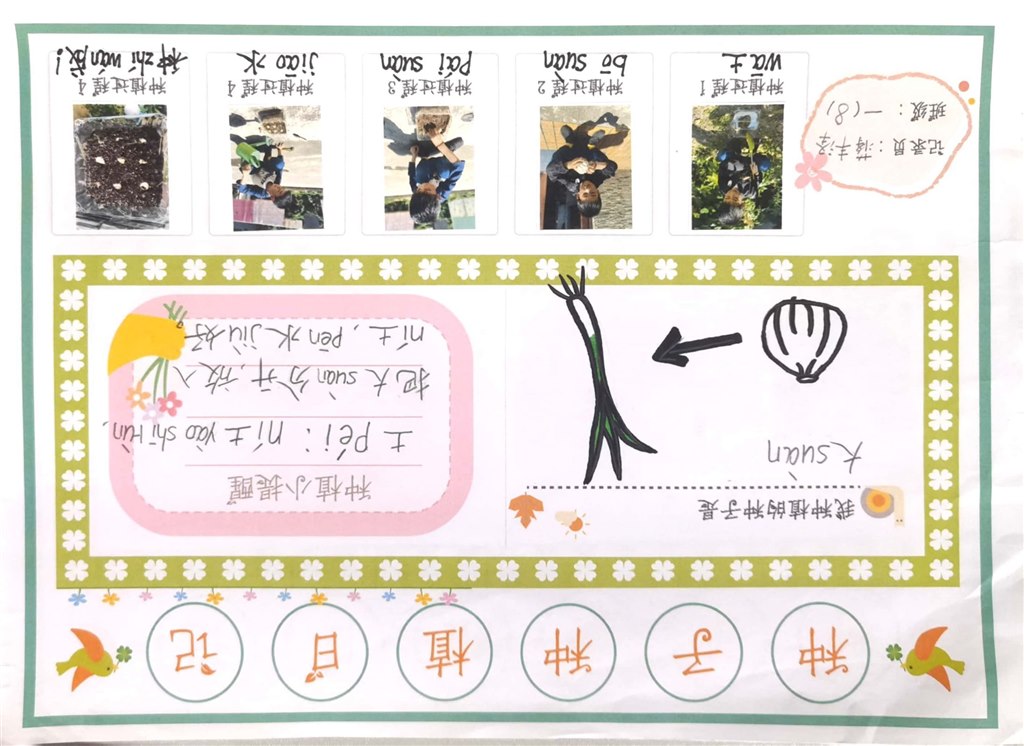 种子种植日记
我种植的种子是
大suàn
种植小提醒
土péi：ní土yào shī rùn，
把大suàn分开，放入
ní土，pēn水jiù好。
记录员：
班级：一(8)
种植过程1
wā土
种植过程2
bō suàn
种植过程3
pái suàn
种植过程4
jiāo水
种植过程4
种zhí wán成！